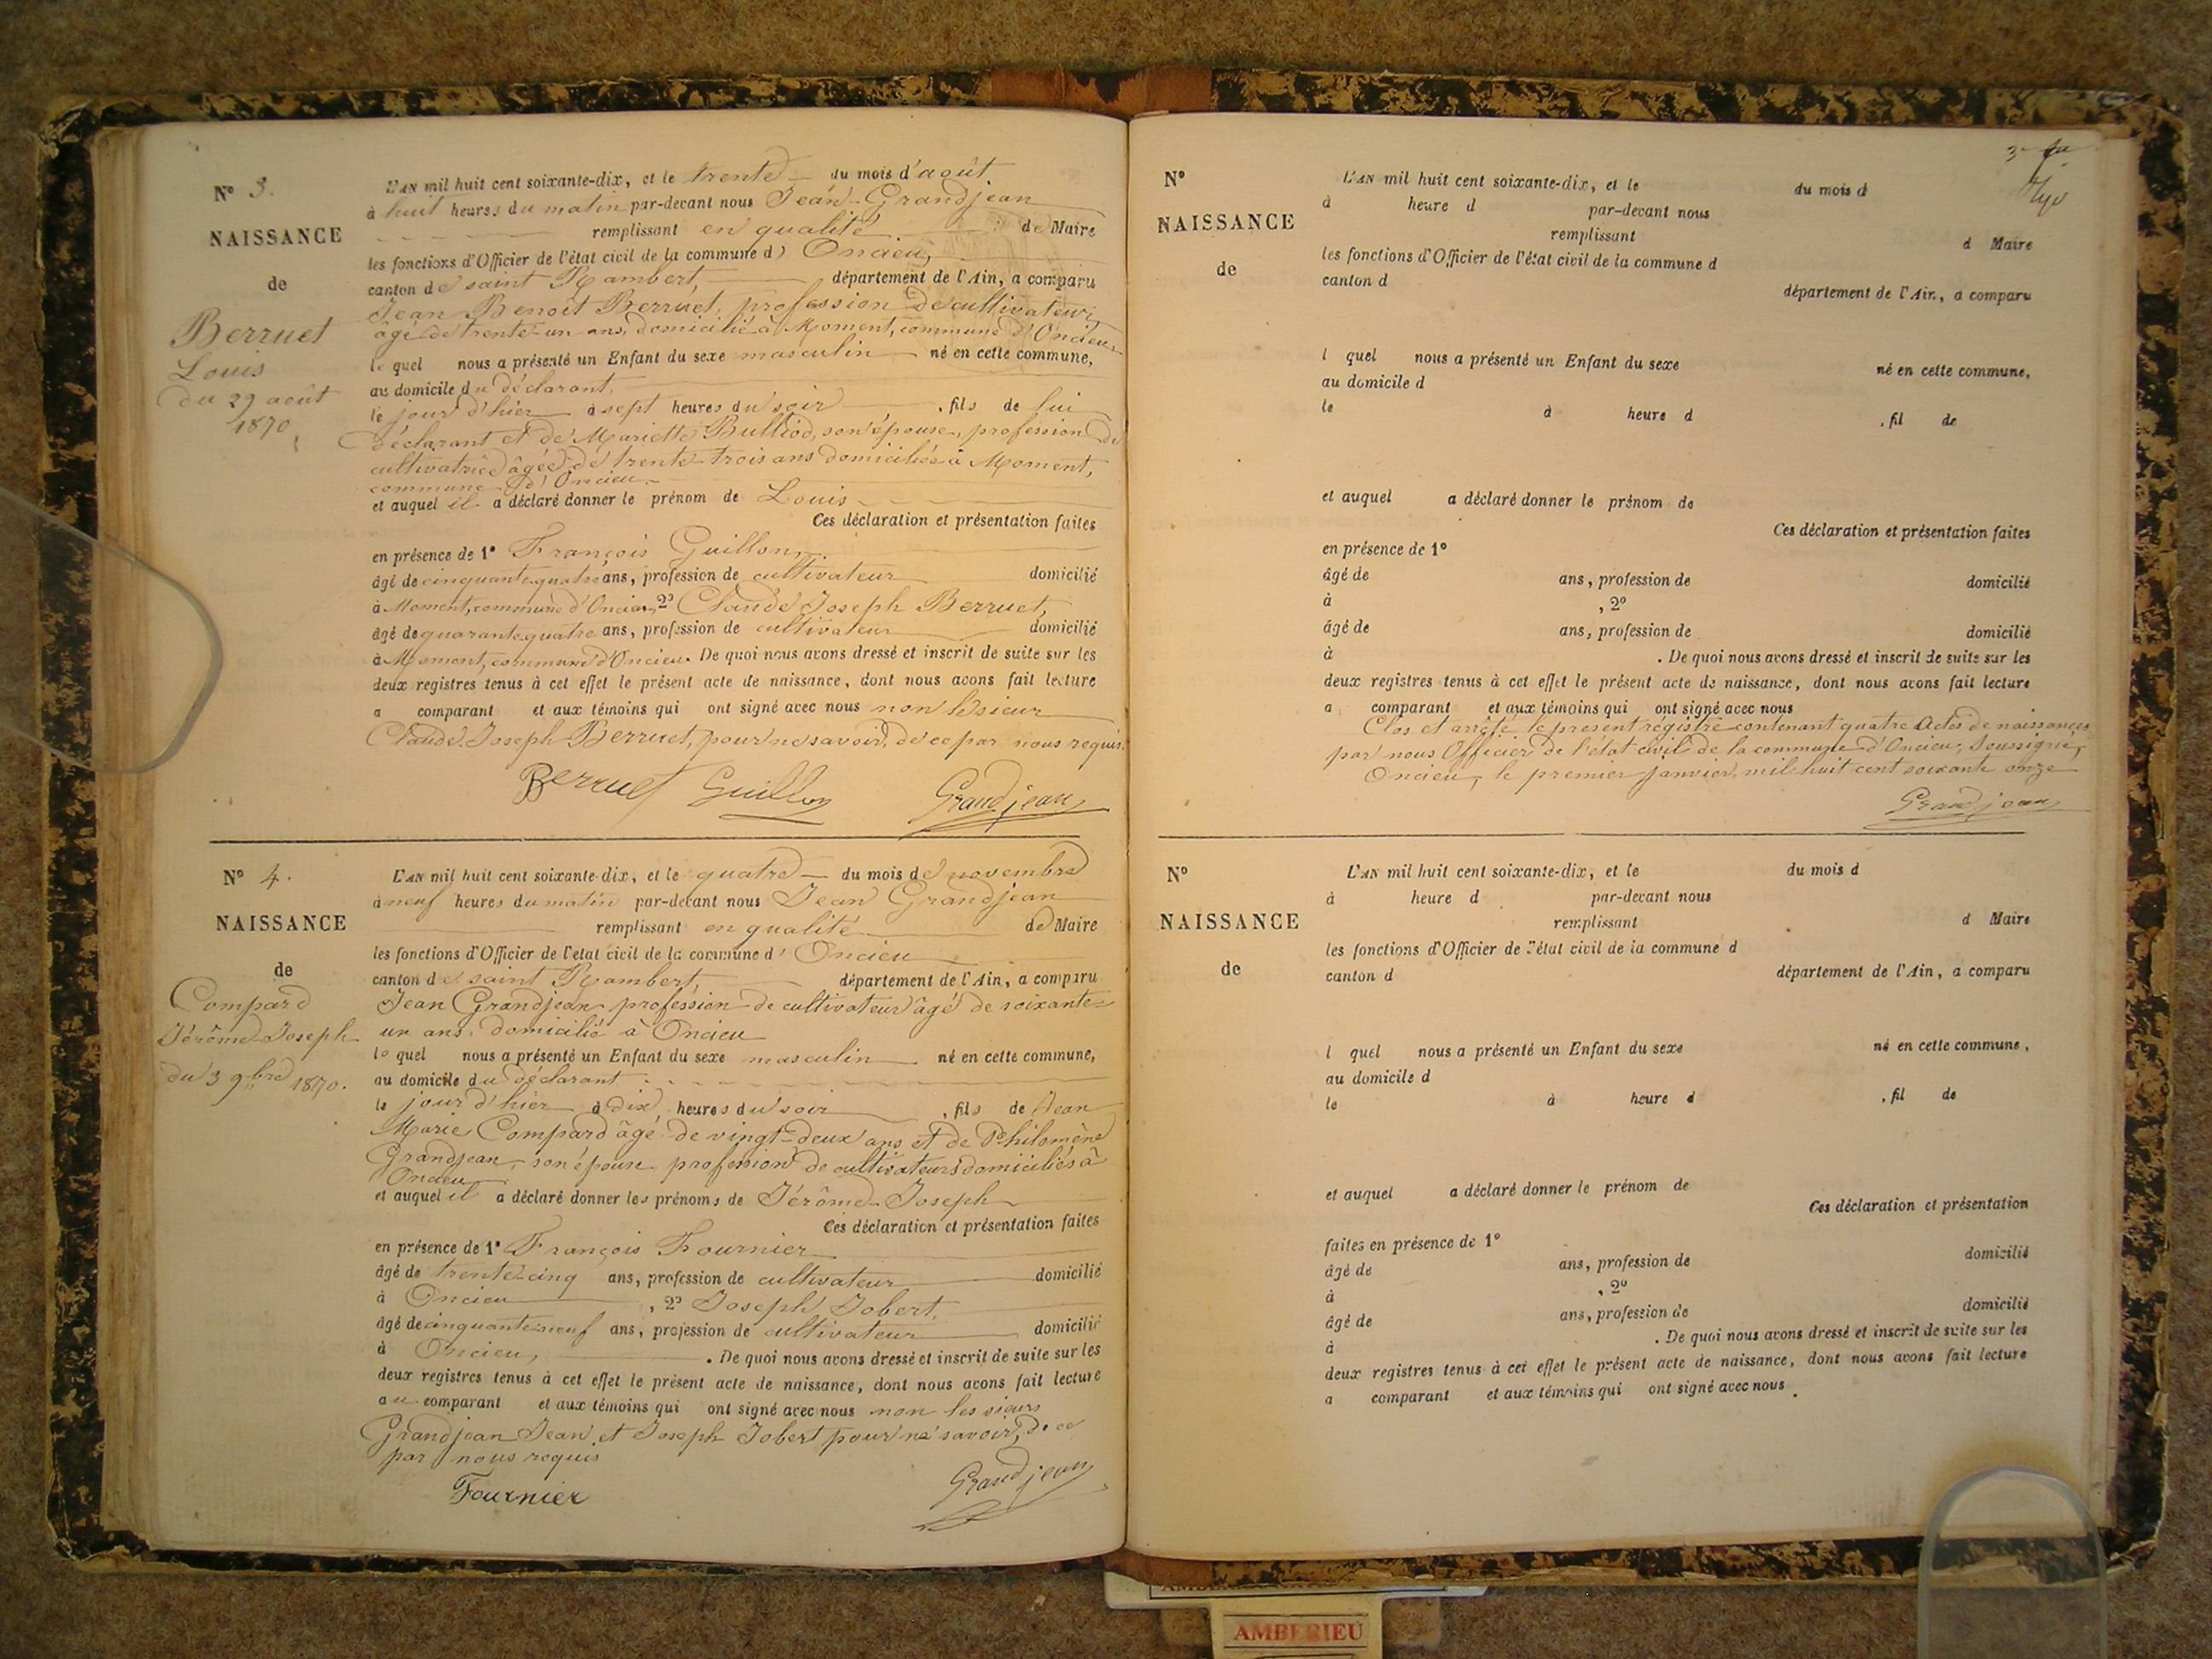 N° 3.
NAISSANCE
de
Berruet
Louis
du 29 août
1870
L'AN mil huit cent soixante-dix, et le trente du mois d'août
à huit heures du matin par-devant nous Jean Grandjean
remplissant en qualité de Maire
les fonctions d'Officier de l'état civil de la commune d' Oncieu,
canton de saint Rambert, département de l'Ain, a comparu
Jean Benoît Berruet, profession de cultivateur,
âgé de trente-un ans, domicilié à Moment, commune d'Oncieu,
lequel nous a présenté un Enfant du sexe masculin né en cette commune,
au domicile du déclarant,
le jour d'hier à sept heures du soir, fils de lui
déclarant et de Mariette Bulliod, son épouse, profession de
cultivatrice âgée de trente-trois ans domiciliée à Moment,
commune d'Oncieu
et auquel il a déclaré donner le prénom de Louis
Ces déclaration et présentation faites
en présence de 1° François Guillon,
âgé de cinquante quatre ans, profession de cultivateur domicilié
à Moment, commune d'Oncieu, 2° Claude Joseph Berruet,
âgé de quarante quatre ans, profession de cultivateur domicilié
à Moment, commune d'Oncieu. De quoi nous avons dressé et inscrit de suite sur les
deux registres tenus à cet effet le présent acte de naissance, dont nous avons fait lecture
a comparant et aux témoins qui ont signé avec nous non le sieur
Claude Joseph Berruet, pour ne savoir, de ce par nous requis.
Berruet Guillon Grandjean
N° 4.
NAISSANCE
de
Compard
Jérôme Joseph
du 3 9bre 1870.
L'AN mil huit cent soixante-dix, et le quatre du mois de novembre
à neuf heures du matin par-devant nous Jean Grandjean
remplissant en qualité de Maire
les fonctions d'Officier de l'état civil de la commune d' Oncieu
canton de saint Rambert, département de l'Ain, a comparu
Jean Grandjean profession de cultivateur âgé de soixante-
un ans, domicilié à Oncieu
lequel nous a présenté un Enfant du sexe masculin né en cette commune,
au domicile du déclarant
le jour d'hier à dix heures du soir, fils de Jean
Marie Compard âgé de vingt-deux ans et de Philomène
Grandjean, son épouse, profession de cultivateurs domiciliés à
Oncieu
et auquel il a déclaré donner les prénoms de Jérôme Joseph
Ces déclaration et présentation faites
en présence de 1° François Fournier
âgé de trente-cinq ans, profession de cultivateur domicilié
à Oncieu, 2° Joseph Jobert,
âgé de cinquante neuf ans, profession de cultivateur domicilié
à Oncieu, . De quoi nous avons dressé et inscrit de suite sur les
deux registres tenus à cet effet le présent acte de naissance, dont nous avons fait lecture
au comparant et aux témoins qui ont signé avec nous non les sieurs
Grandjean Jean et Joseph Jobert pour ne savoir, de ce
par nous requis
Fournier Grandjean
N°
NAISSANCE
de
L'AN mil huit cent soixante-dix, et le du mois d
à heure d par-devant nous
remplissant d Maire
les fonctions d'Officier de l'état civil de la commune d
canton d département de l'Ain, a comparu
l quel nous a présenté un Enfant du sexe né en cette commune,
au domicile d
le à heure d , fil de
et auquel a déclaré donner le prénom de
Ces déclaration et présentation faites
en présence de 1°
âgé de ans, profession de domicilié
à , 2°
âgé de ans, profession de domicilié
à . De quoi nous avons dressé et inscrit de suite sur les
deux registres tenus à cet effet le présent acte de naissance, dont nous avons fait lecture
a comparant et aux témoins qui ont signé avec nous
Clos et arrêté le present régistre contenant quatre Actes de naissances,
par nous Officier de l'état civil de la commune d'Oncieu, soussigné,
Oncieu, le premier janvier mil huit cent soixante onze
Grandjean
N°
NAISSANCE
de
L'AN mil huit cent soixante-dix, et le du mois d
à heure d par-devant nous
remplissant d Maire
les fonctions d'Officier de l'état civil de la commune d
canton d département de l'Ain, a comparu
l quel nous a présenté un Enfant du sexe né en cette commune,
au domicile d
le à heure d , fil de
et auquel a déclaré donner le prénom de
Ces déclaration et présentation
faites en présence de 1°
âgé de ans, profession de domicilié
à , 2°
âgé de ans, profession de domicilié
à . De quoi nous avons dressé et inscrit de suite sur les
deux registres tenus à cet effet le présent acte de naissance, dont nous avons fait lecture
a comparant et aux témoins qui ont signé avec nous.
AMBERIEU